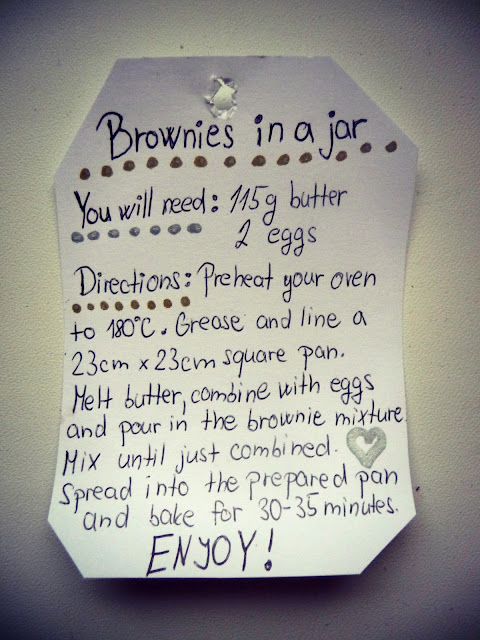 Brownies in a jar
You will need: 115g butter
2 eggs
Directions: Preheat your oven
to 180°C. Grease and line a
23cm x 23cm square pan.
Melt butter, combine with eggs
and pour in the brownie mixture.
Mix until just combined.
Spread into the prepared pan
and bake for 30-35 minutes.
ENJOY!